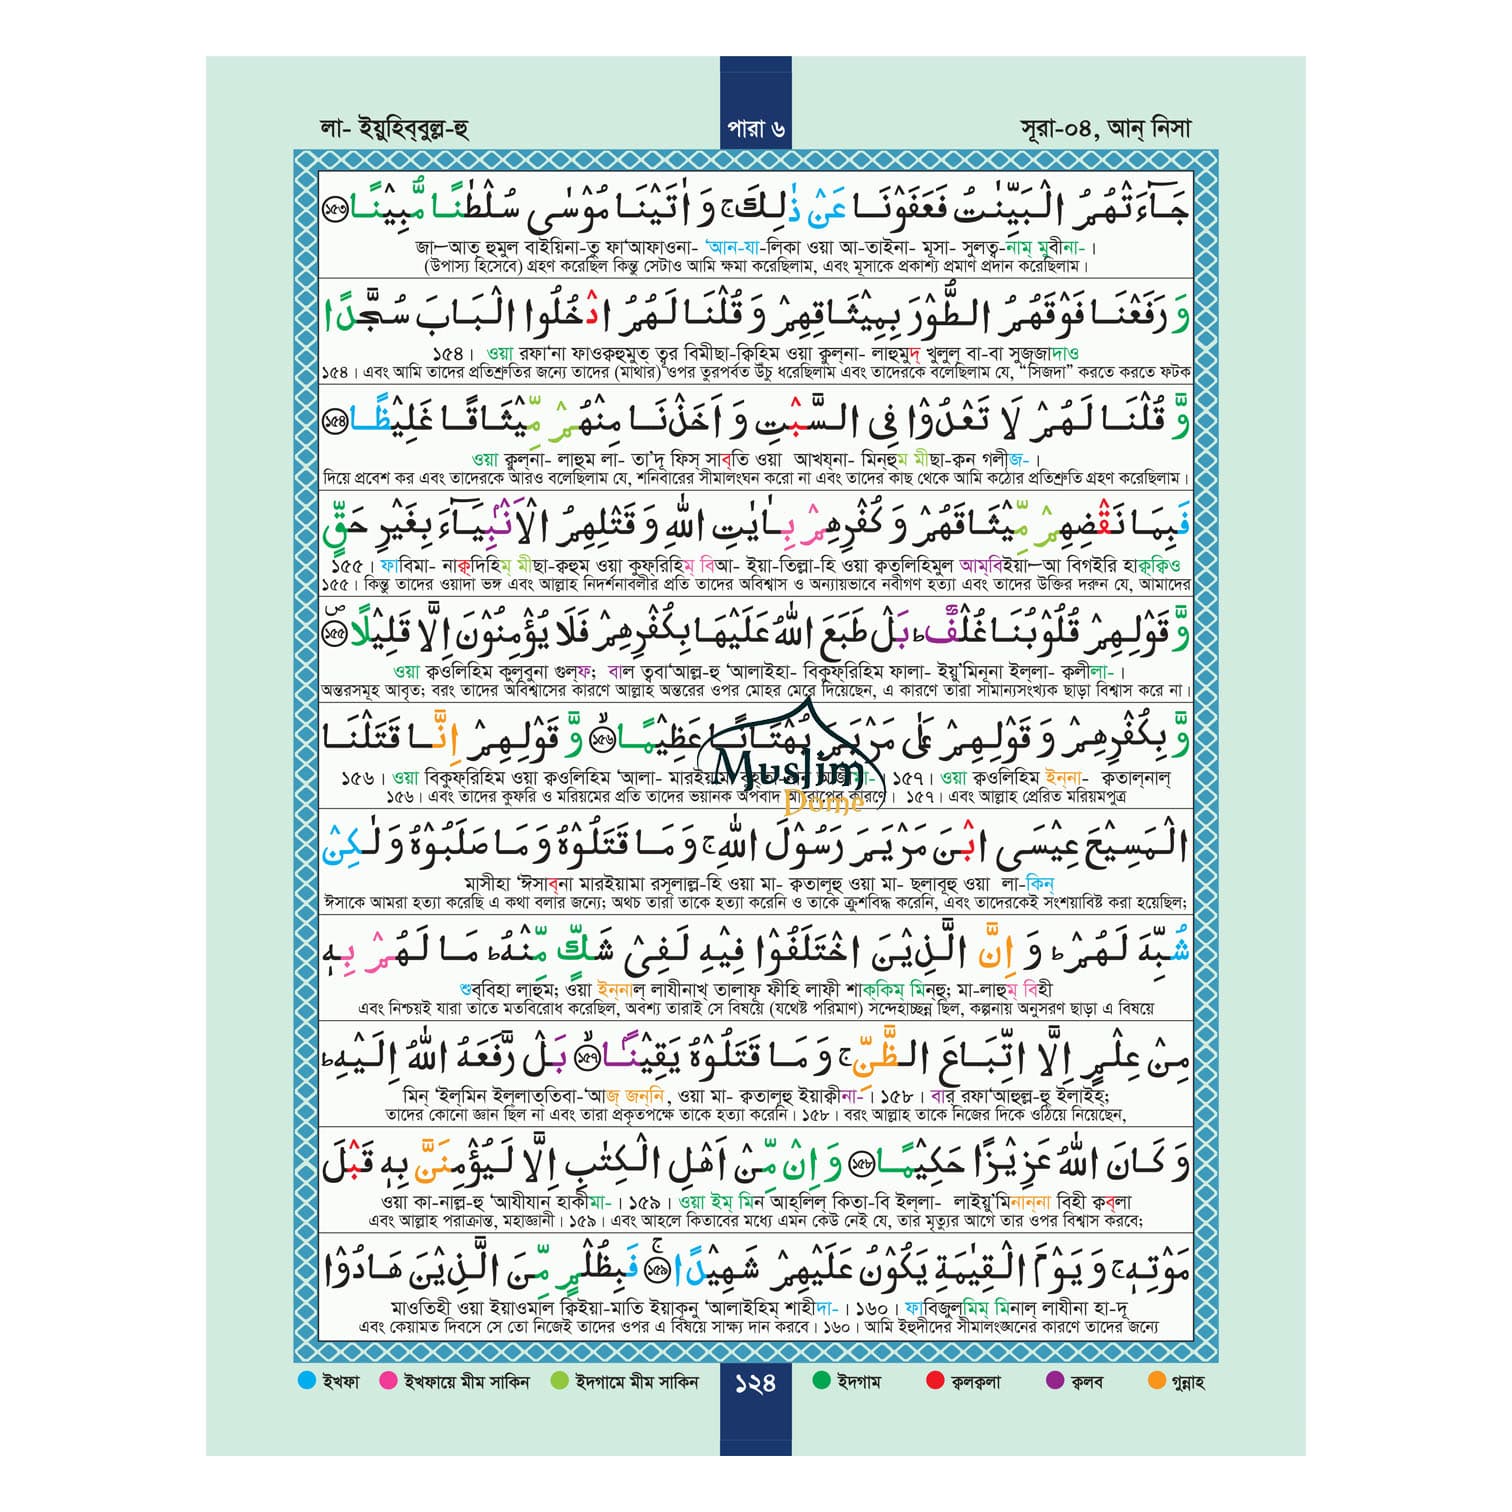 লা- ইয়ুহিব্বুল্ল-হু
পারা ৬
সূরা-০৪, আন্ নিসা
جَآءَتْهُمُ الْبَيِّنٰتُ فَعَفَوْنَا عَنْ ذٰلِكَ ۚ وَ اٰتَيْنَا مُوْسٰى سُلْطٰنًا مُّبِيْنًا ১৫৩
জা—আত্ হুমুল বাইয়িনা-তু ফা‘আফাওনা- ‘আন-যা-লিকা ওয়া আ-তাইনা- মূসা- সুলত্ব-নাম্ মুবীনা- ।
(উপাস্য হিসেবে) গ্রহণ করেছিল কিন্তু সেটাও আমি ক্ষমা করেছিলাম, এবং মূসাকে প্রকাশ্য প্রমাণ প্রদান করেছিলাম।
وَ رَفَعْنَا فَوْقَهُمُ الطُّوْرَ بِمِيْثَاقِهِمْ وَ قُلْنَا لَهُمُ ادْخُلُوا الْبَابَ سُجَّدًا
১৫৪। ওয়া রফা‘না ফাওক্বহুমুত্ ত্বূর বিমীছা-ক্বিহিম ওয়া ক্বুল্না- লাহুমুদ্ খুলুল্ বা-বা সুজ্জাদাও
১৫৪। এবং আমি তাদের প্রতিশ্রুতির জন্যে তাদের (মাথার) ওপর তুরপর্বত উঁচু ধরেছিলাম এবং তাদেরকে বলেছিলাম যে, “সিজদা” করতে করতে ফটক
وَّ قُلْنَا لَهُمْ لَا تَعْدُوْا فِى السَّبْتِ وَ اَخَذْنَا مِنْهُمْ مِّيْثَاقًا غَلِيْظًا ১৫৪
ওয়া ক্বুল্না- লাহুম লা- তা’দূ ফিস্ সাব্তি ওয়া আখয্না- মিন্হুম মীছা-ক্বন গলীজ- ।
দিয়ে প্রবেশ কর এবং তাদেরকে আরও বলেছিলাম যে, শনিবারের সীমালংঘন করো না এবং তাদের কাছ থেকে আমি কঠোর প্রতিশ্রুতি গ্রহণ করেছিলাম।
فَبِمَا نَقْضِهِمْ مِّيْثَاقَهُمْ وَ كُفْرِهِمْ بِاٰيٰتِ اللّٰهِ وَ قَتْلِهِمُ الْاَنْۢبِيَآءَ بِغَيْرِ حَقٍّ
১৫৫। ফাবিমা- নাক্ব্দিহিম্ মীছা-ক্বহুম ওয়া কুফ্রিহিম্ বিআ- ইয়া-তিল্লা-হি ওয়া ক্বত্লিহিমুল আম্বিইয়া—আ বিগইরি হাক্ব্ক্বিও
১৫৫। কিন্তু তাদের ওয়াদা ভঙ্গ এবং আল্লাহ নিদর্শনাবলীর প্রতি তাদের অবিশ্বাস ও অন্যায়ভাবে নবীগণ হত্যা এবং তাদের উক্তির দরুন যে, আমাদের
وَّ قَوْلِهِمْ قُلُوْبُنَا غُلْفٌ ؕ بَلْ طَبَعَ اللّٰهُ عَلَيْهَا بِكُفْرِهِمْ فَلَا يُؤْمِنُوْنَ اِلَّا قَلِيْلًا ১৫৫
ওয়া ক্বওলিহিম কুলূবুনা গুল্ফ; বাল ত্ববা‘আল্ল-হু ‘আলাইহা- বিকুফ্রিহিম ফালা- ইয়ু’মিনূনা ইল্লা- ক্বলীলা- ।
অন্তরসমূহ আবৃত; বরং তাদের অবিশ্বাসের কারণে আল্লাহ অন্তরের ওপর মোহর মেরে দিয়েছেন, এ কারণে তারা সামান্যসংখ্যক ছাড়া বিশ্বাস করে না।
وَّ بِكُفْرِهِمْ وَ قَوْلِهِمْ عَلٰى مَرْيَمَ بُهْتَانًا عَظِيْمًا ১৫৬ وَّ قَوْلِهِمْ اِنَّا قَتَلْنَا
Muslim
Dome
১৫৬। ওয়া বিকুফ্রিহিম ওয়া ক্বওলিহিম ‘আলা- মারইয়ামা বুহ্তা-নান্ আজীমা- । ১৫৭। ওয়া ক্বওলিহিম ইন্না- ক্বতাল্নাল্
১৫৬। এবং তাদের কুফরি ও মরিয়মের প্রতি তাদের ভয়ানক অপবাদ আরোপের কারণে। ১৫৭। এবং আল্লাহ প্রেরিত মরিয়মপুত্র
الْمَسِيْحَ عِيْسَى ابْنَ مَرْيَمَ رَسُوْلَ اللّٰهِ ۚ وَ مَا قَتَلُوْهُ وَ مَا صَلَبُوْهُ وَ لٰكِنْ
মাসীহা ‘ঈসাব্না মারইয়ামা রসূলাল্ল-হি ওয়া মা- ক্বতালূহু ওয়া মা- ছলাবূহু ওয়া লা-কিন্
ঈসাকে আমরা হত্যা করেছি এ কথা বলার জন্যে; অথচ তারা তাকে হত্যা করেনি ও তাকে ক্রুশবিদ্ধ করেনি, এবং তাদেরকেই সংশয়াবিষ্ট করা হয়েছিল;
شُبِّهَ لَهُمْ ؕ وَ اِنَّ الَّذِيْنَ اخْتَلَفُوْا فِيْهِ لَفِىْ شَكٍّ مِّنْهُ ؕ مَا لَهُمْ بِهٖ
শুব্বিহা লাহুম; ওয়া ইন্নাল্ লাযীনাখ্ তালাফূ ফীহি লাফী শাক্কিম্ মিন্হু; মা-লাহুম্ বিহী
এবং নিশ্চয়ই যারা তাতে মতবিরোধ করেছিল, অবশ্য তারাই সে বিষয়ে (যথেষ্ট পরিমাণ) সন্দেহাচ্ছন্ন ছিল, কল্পনায় অনুসরণ ছাড়া এ বিষয়ে
مِنْ عِلْمٍ اِلَّا اتِّبَاعَ الظَّنِّ ۚ وَ مَا قَتَلُوْهُ يَقِيْنًۢا ১৫৭ بَلْ رَّفَعَهُ اللّٰهُ اِلَيْهِ ؕ
মিন্ ‘ইল্মিন ইল্লাত্তিবা-‘আজ্ জন্নি, ওয়া মা- ক্বতালূহু ইয়াক্বীনা- । ১৫৮। বার্ রফা‘আহুল্ল-হু ইলাইহ্;
তাদের কোনো জ্ঞান ছিল না এবং তারা প্রকৃতপক্ষে তাকে হত্যা করেনি। ১৫৮। বরং আল্লাহ তাকে নিজের দিকে ওঠিয়ে নিয়েছেন,
وَ كَانَ اللّٰهُ عَزِيْزًا حَكِيْمًا ১৫৮ وَ اِنْ مِّنْ اَهْلِ الْكِتٰبِ اِلَّا لَيُؤْمِنَنَّ بِهٖ قَبْلَ
ওয়া কা-নাল্ল-হু ‘আযীযান হাকীমা- । ১৫৯। ওয়া ইম্ মিন আহ্লিল্ কিতা-বি ইল্লা- লাইয়ু’মিনান্না বিহী ক্বব্লা
এবং আল্লাহ পরাক্রান্ত, মহাজ্ঞানী। ১৫৯। এবং আহলে কিতাবের মধ্যে এমন কেউ নেই যে, তার মৃত্যুর আগে তার ওপর বিশ্বাস করবে;
مَوْتِهٖ ۚ وَ يَوْمَ الْقِيٰمَةِ يَكُوْنُ عَلَيْهِمْ شَهِيْدًا ১৫৯ فَبِظُلْمٍ مِّنَ الَّذِيْنَ هَادُوْا
মাওতিহী ওয়া ইয়াওমাল ক্বিইয়া-মাতি ইয়াকূনু ‘আলাইহিম্ শাহীদা- । ১৬০। ফাবিজুল্মিম্ মিনাল্ লাযীনা হা-দূ
এবং কেয়ামত দিবসে সে তো নিজেই তাদের ওপর এ বিষয়ে সাক্ষ্য দান করবে। ১৬০। আমি ইহুদীদের সীমালংঘনের কারণে তাদের জন্যে
ইখফা ইখফায়ে মীম সাকিন ইদগামে মীম সাকিন ১২৪ ইদগাম ক্বলক্বলা ক্বলব গুন্নাহ